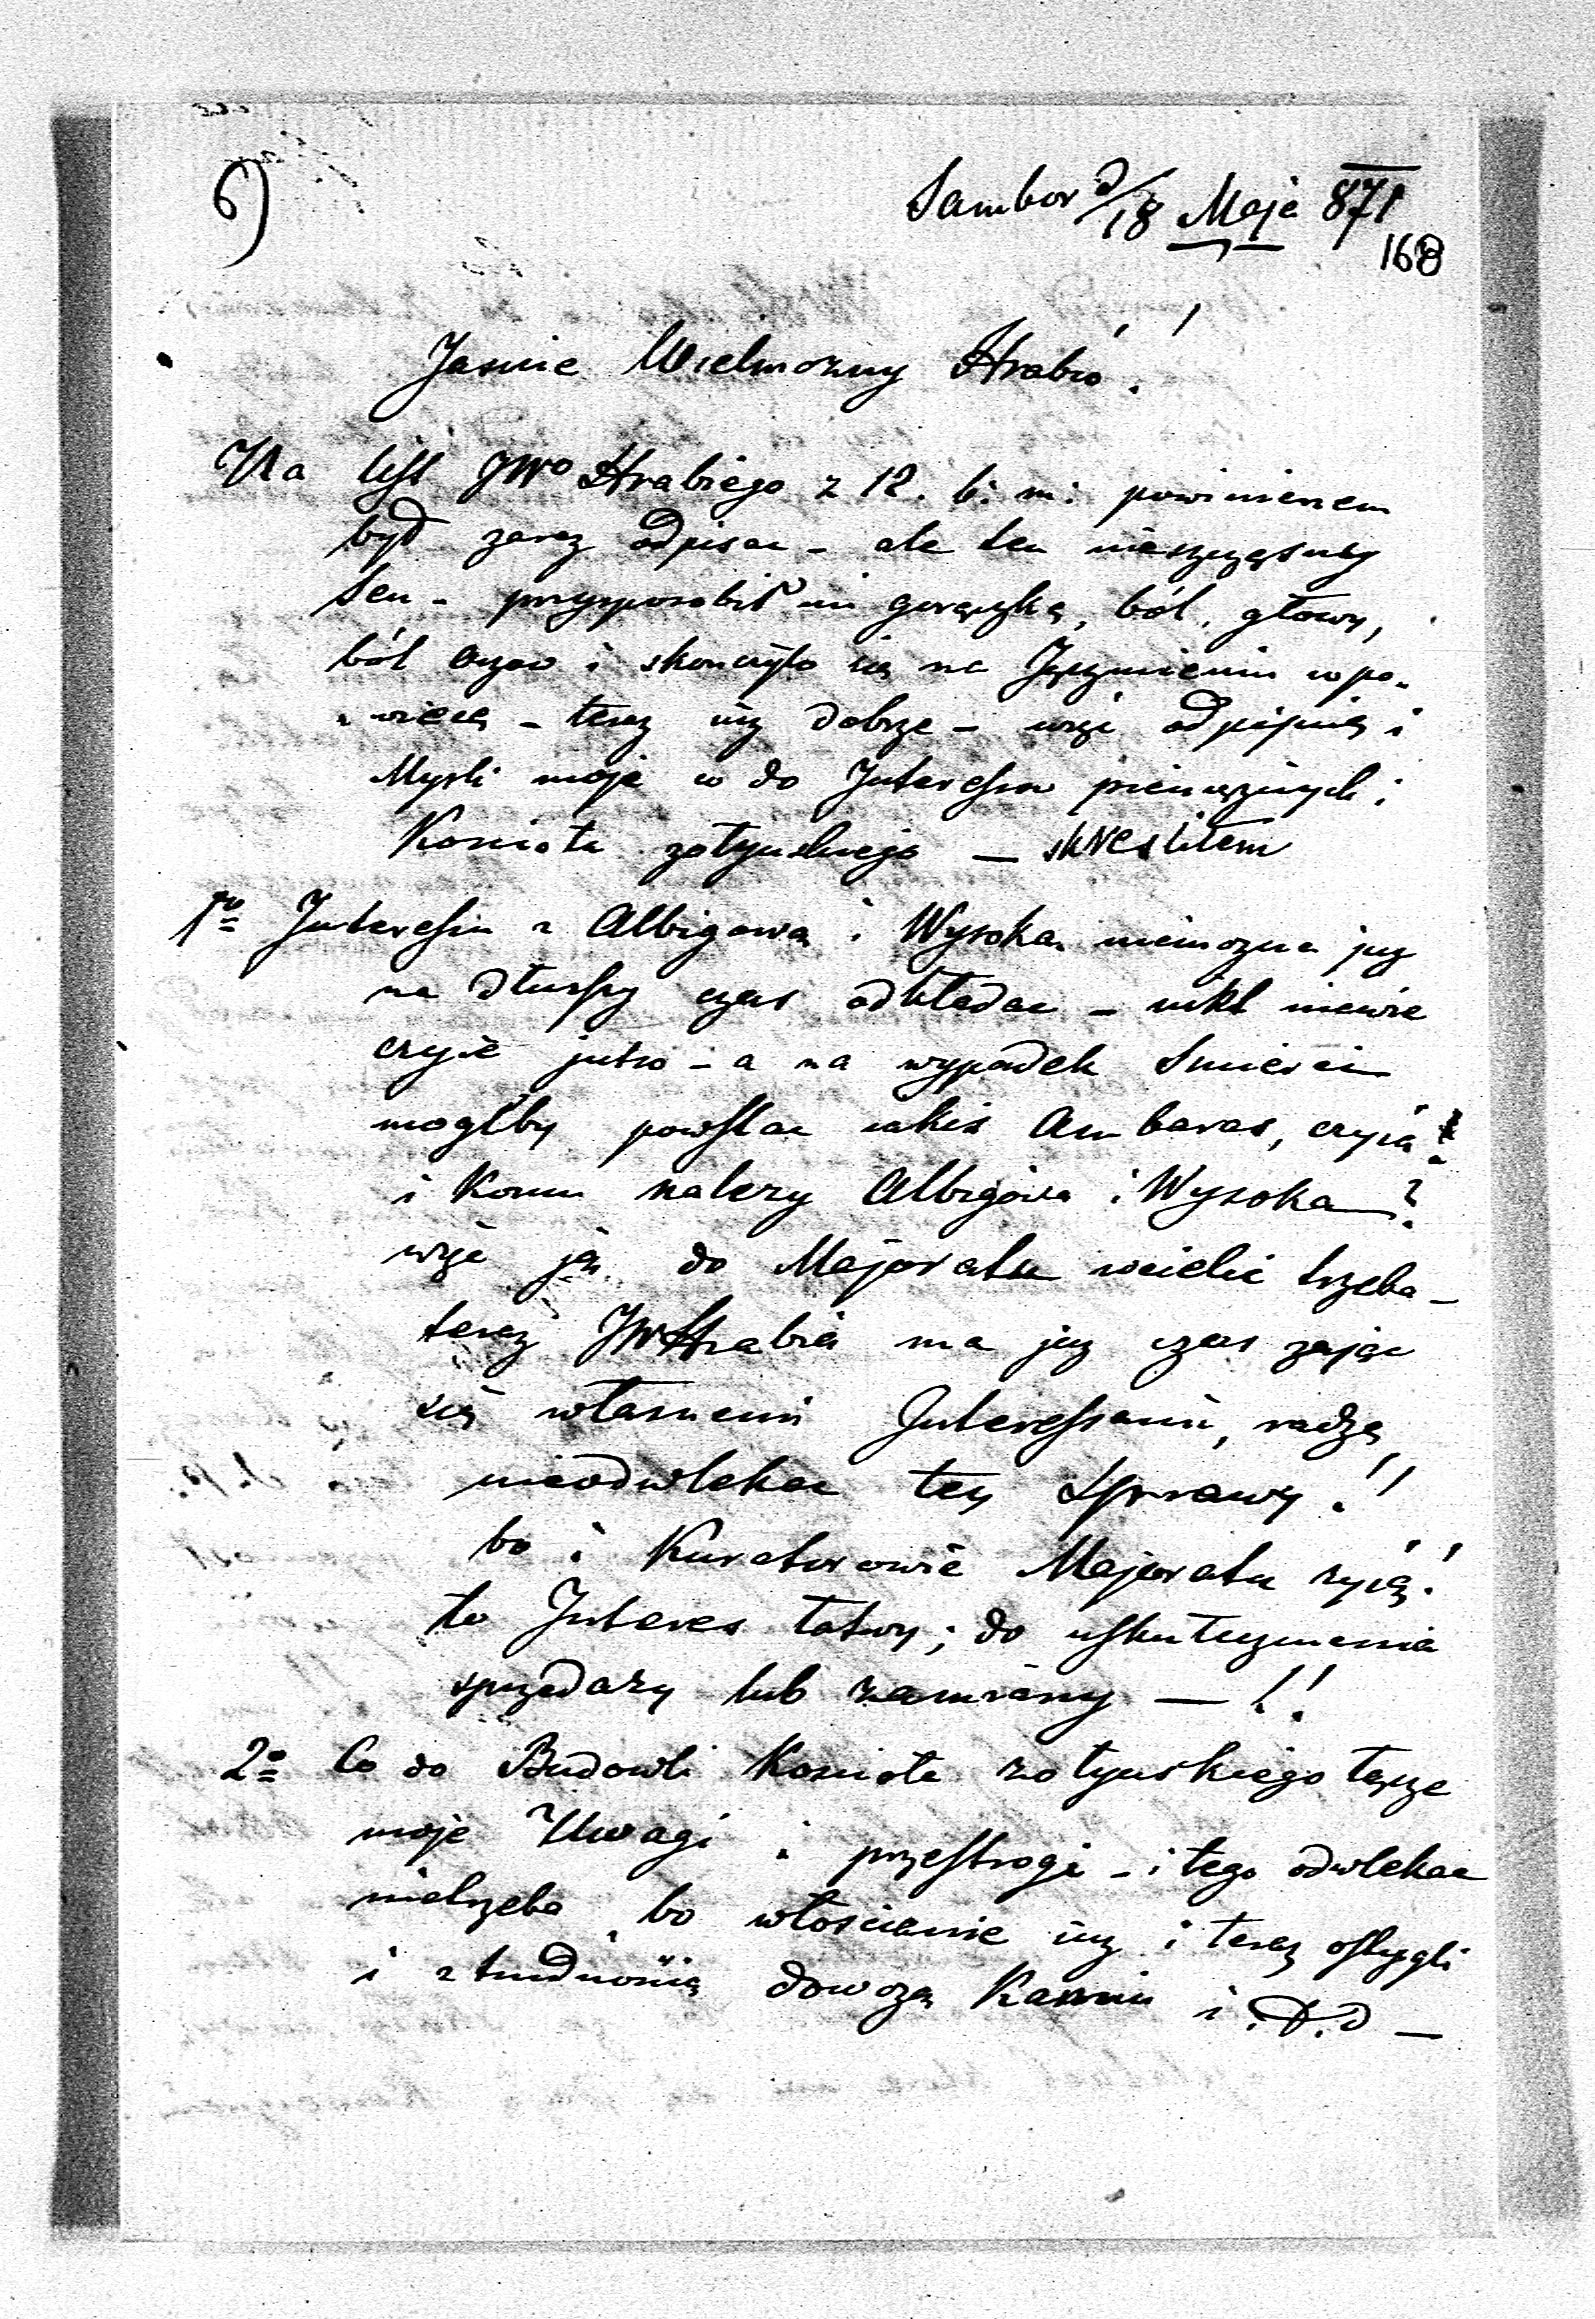 6)
Sambor d/18 Maja 871
168
Jasnie Wielmozny Hrabio!!
Na list JWo Hrabiego z 12. b. m: powinienem
był zaraz odpisac - ale ten nieszczęsny
Sen - przysposobił mi gorączkę, ból, głowy,
ból oczow i skonczyło się na Jęczmieniu w po-
wiece - teraz iuż dobrze - więc odpisuię i
Mysli moje co do Interessow pieniężnych i
Koscioła zołynskiego — skreslilem
1o Interessu z Albigową i Wysoką niemozna juz
na dłuszy czas odkładac - nikt niewie
czyie jutro - a na wypadek Smierci
mogłby powstac iakis Ambaras, czyia?
i Komu nalezy Albigowa i Wysoka?
więc ją do Majoratu wcielic trzeba -
teraz JWHrabia ma juz czas zając
się własnemi Interessami, radzę
nieodwlekac tey Sprawy!!
bo i Kuratorowie Majoratu zyią!!
to Interes łatwy; do uskutecznienia
sprzedazy lub zamiany — !!
2o Co do Budowli Koscioła zołynskiego łączę
moje Uwagi i przestrogi - i tego odwlekac
nietrzeba bo włoscianie iuz i teraz ostygli
i z trudnoscią dowozą Kamin i. t. d —